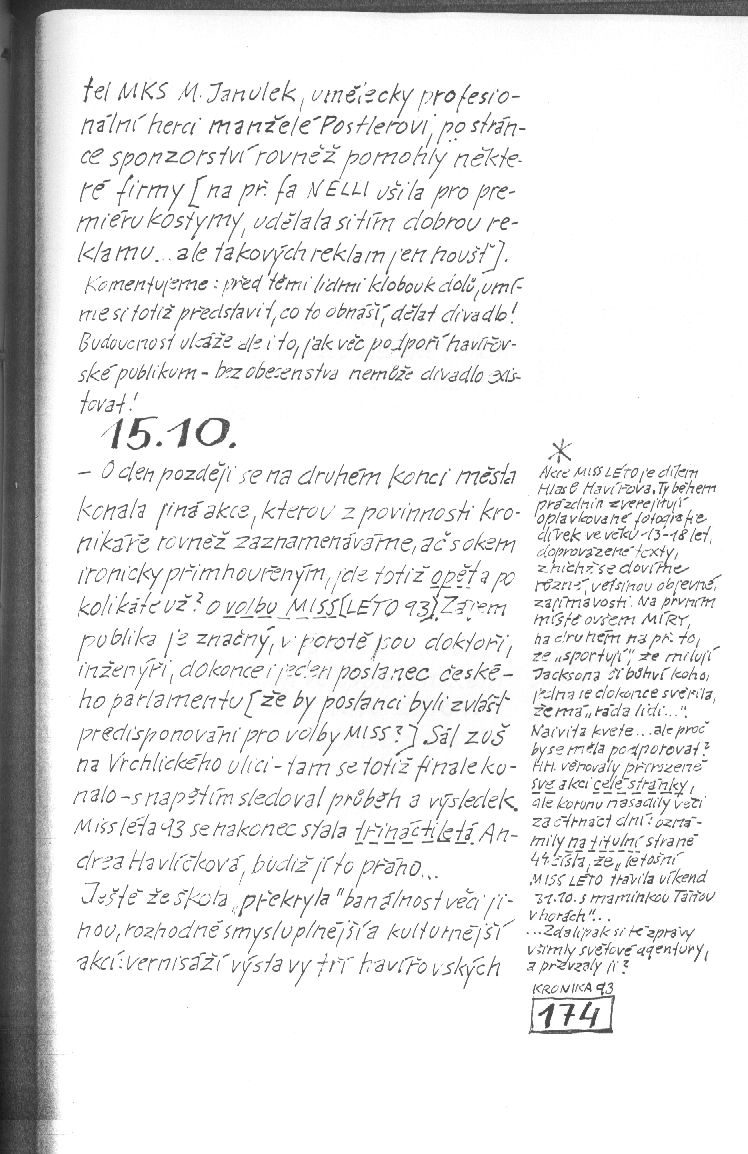 tel MKS M. Janulek, umělecky profesio-
nální herci manželé Postlerovi, po strán-
ce sponzorství rovněž pomohly někte-
ré firmy [na př. fa NELLI ušila pro pre-
miéru kostymy, udělala si tím dobrou re-
klamu... ale takových reklam jen houšť].
Komentujeme: před těmi lidmi klobouk dolů, umí-
me si totiž představit, co to obnáší, dělat divadlo!
Budoucnost ukáže ale i to, jak věc podpoří havířov-
ské publikum - bez obecenstva nemůže divadlo exis-
tovat!
15.10.
- O den později se na druhém konci města
konala jiná akce, kterou z povinnosti kro-
nikáře rovněž zaznamenáváme, ač s okem
ironicky přimhouřeným, jde totiž opět a po
kolikáté už? o volbu MISS [LÉTO 93]. Zájem
publika je značný, v porotě jsou doktoři,
inženýři, dokonce i jeden poslanec české-
ho parlamentu [že by poslanci byli zvlášť
predisponováni pro volby MISS?] Sál ZUŠ
na Vrchlického ulici - tam se totiž finale ko-
nalo - s napětím sledoval průběh a výsledek.
Miss léta 93 se nakonec stala třináctiletá An-
drea Havlíčková, budiž jí to přáno...
Ještě že škola „překryla" banálnost věci ji-
nou, rozhodně smysluplnější a kulturnější
akcí: vernisáží výstavy tří havířovských
*
Akce MISS LÉTO je dílem
Hlasů Havířova. Ty během
prázdnin zveřejňují
oplavkované fotografie
dívek ve věku 13-18 let,
doprovázené texty,
z nichž se dovíme
různé, většinou objevné,
zajímavosti. Na prvním
místě ovšem MÍRY,
na druhém na př. to,
že „sportují", že milují
Jacksona či bůhví koho,
jedna se dokonce svěřila,
že má „ráda lidi...".
Naivita kvete... ale proč
by se měla podporovat?
HH. věnovaly přirozeně
své akci celé stránky,
ale korunu nasadily věci
za čtrnáct dní: ozná-
mily na titulní straně
44. čísla, že „letošní
MISS LÉTO trávila víkend
31.10. s maminkou Táňou
v horách"...
...Zdalipak si té zprávy
všimly světové agentury,
a převzaly ji?
KRONIKA 93
174